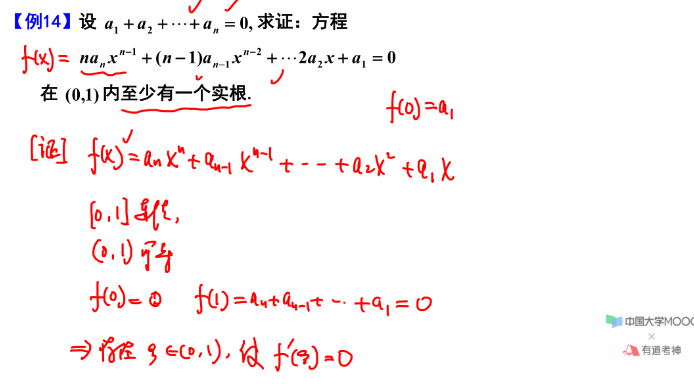 【例14】设 a₁ + a₂ + ⋯ + aₙ = 0, 求证：方程
f(x) = naₙxⁿ⁻¹ + (n−1)aₙ₋₁xⁿ⁻² + ⋯2a₂x + a₁ = 0
在 (0,1) 内至少有一个实根.
f(0) = a₁
[证] f(x) = aₙxⁿ + aₙ₋₁xⁿ⁻¹ + ⋯ + a₂x² + a₁x
[0,1] 连续,
(0,1) 可导
f(0) = 0 f(1) = aₙ + aₙ₋₁ + ⋯ + a₁ = 0
⇒ 存在 ξ ∈ (0,1), 使 f′(ξ) = 0
中国大学MOOC
×
有道考神